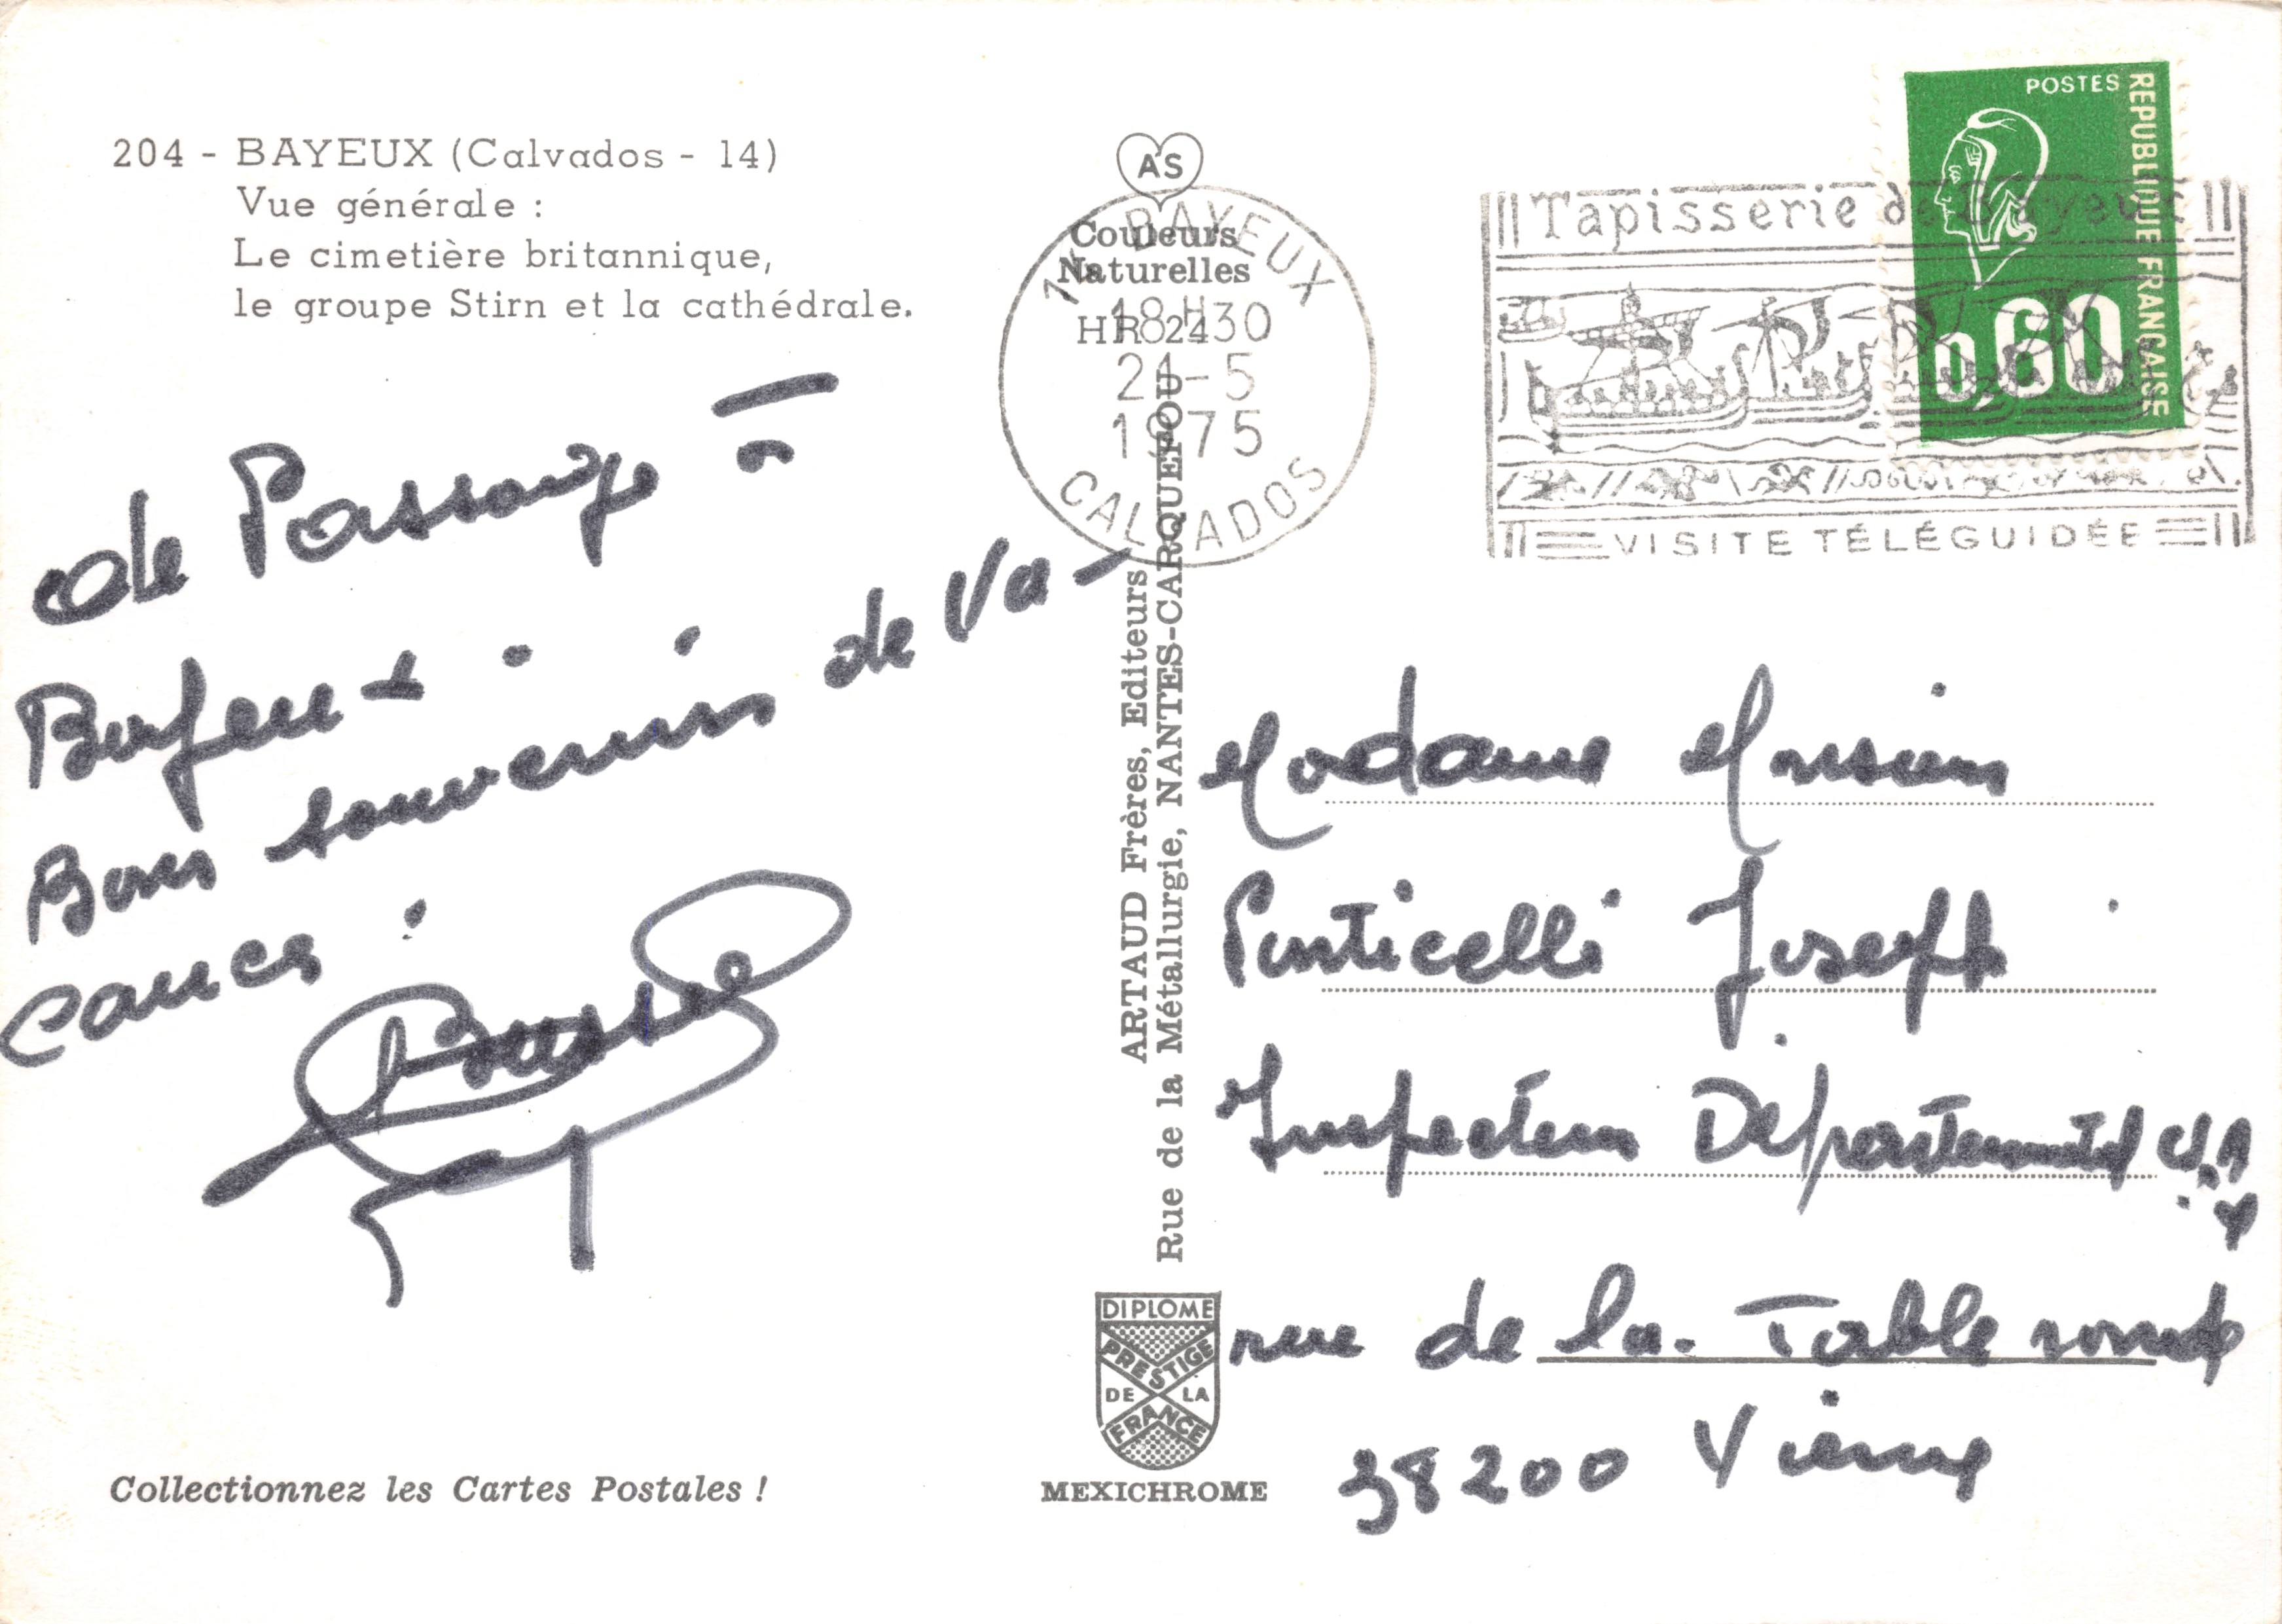 204 - BAYEUX (Calvados - 14)
Vue générale :
Le cimetière britannique,
le groupe Stirn et la cathédrale.
de Passage à
Bayeux.
Bons souvenirs de Va-
cances.
Collectionnez les Cartes Postales !
AS
Couleurs
Naturelles
HR 24
14 BAYEUX
18H30
21-5
1975
CALVADOS
ARTAUD Frères, Editeurs
Rue de la Métallurgie, NANTES-CARQUEFOU
DIPLOME
PRESTIGE
DE LA
FRANCE
MEXICHROME
POSTES
REPUBLIQUE FRANCAISE
0,60
Tapisserie de Bayeux
VISITE TÉLÉGUIDÉE
Madame Monsieur
Ponticelli Joseph
Inspecteur Départemental
rue de la Table ronde
38200 Vienne